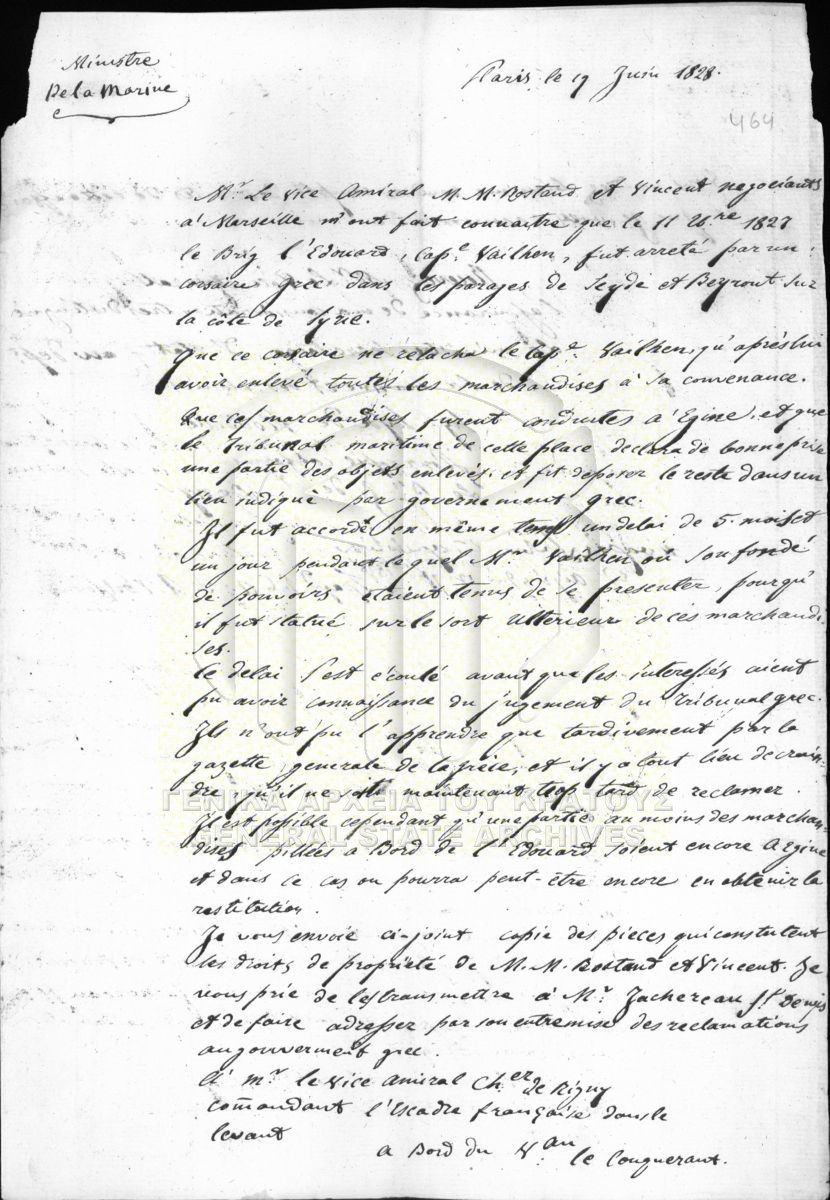 Ministre
De la Marine
Paris, le 19 Juin 1828.
464
Mr. Le Vice Amiral M. M. Rostand et Vincent negociants
à Marseille m'ont fait connaitre que le 11 Xbre 1827
le Brig l'Edouard, Cape. Vailhen, fut arreté par un
corsaire grec dans les parages de Seyde et Beyrout sur
la côte de Syrie.
Que ce corsaire ne relacha le Cape. Vailhen, qu'après lui
avoir enlevé toutes les marchandises à sa convenance.
Que ces marchandises furent conduites à Egine, et que
le Tribunal maritime de cette place declara de bonne prise
une partie des objets enlevés, et fit deposer le reste dans un
lieu indiqué par governement grec.
Il fut accordé en même temps un delai de 5. mois et
un jour pendant le quel Mr. Vailhen où son fondé
de pouvoirs etaient tenus de se presenter, pourqu'
il fut statué sur le sort ulterieur de ces marchandi
ses.
Ce delai s'est écoulé avant que les interessés aient
pu avoir connaissance du jugement du Tribunal grec.
Ils n'ont pu l'apprendre que tardivement par la
gazette generale de la Grèce, et il y a tout lieu de crain-
dre qu'il ne soit maintenant trop tard de reclamer.
Il est possible cependant qu'une partie au moins des marchan
dises pillées a Bord de l'Edouard soient encore a Egine
et dans ce cas on pourra peut-être encore en obtenir la
restitution.
Je vous envoie ci-joint copie des pieces qui constatent
les droits de propriété de M. M. Rostand et Vincent. Je
vous prie de les transmettre à Mr. Jachereau St. Denys
et de faire adresser par son entremise des reclamations
au gouverment grec.
A mr. le Vice Amiral Cher. de Rigny
com̄andant l'Escadre française dans le
levant
a Bord du Vau. le Conquerant.
ΓΕΝΙΚΑ ΑΡΧΕΙΑ ΤΟΥ ΚΡΑΤΟΥΣ
GENERAL STATE ARCHIVES